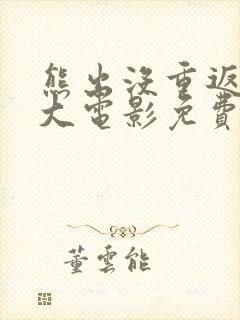 熊出没重返
大电影免費
董雲能